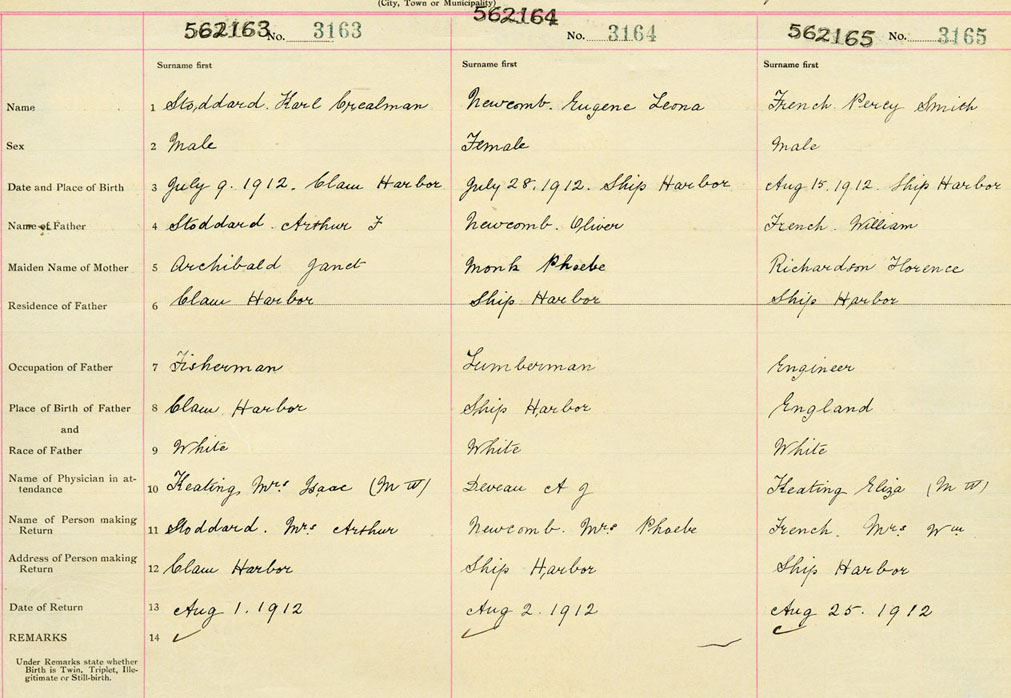 (City, Town or Municipality)
562163 No. 3163 562164 No. 3164 562165 No. 3165
Surname first Surname first Surname first
Name 1 Stoddard. Karl Crealman Newcomb. Eugene Leona French Percy Smith
Sex 2 Male Female Male
Date and Place of Birth 3 July 9. 1912. Clam Harbor July 28. 1912. Ship Harbor Aug 15. 1912. Ship Harbor
Name of Father 4 Stoddard. Arthur F Newcomb. Oliver French. William
Maiden Name of Mother 5 Archibald Janet Monk Phoebe Richardson Florence
Residence of Father 6 Clam Harbor Ship Harbor Ship Harbor
Occupation of Father 7 Fisherman Lumberman Engineer
Place of Birth of Father 8 Clam Harbor Ship Harbor England
and
Race of Father 9 White White White
Name of Physician in at-
tendance 10 Keating, Mrs Isaac (M W) Deveau A J Keating Eliza (M W)
Name of Person making
Return 11 Stoddard. Mrs Arthur Newcomb. Mrs Phoebe French. Mrs Wm
Address of Person making
Return 12 Clam Harbor Ship Harbor Ship Harbor
Date of Return 13 Aug 1. 1912 Aug 2. 1912 Aug 25. 1912
REMARKS 14
Under Remarks state whether
Birth is Twin, Triplet, Ille-
gitimate or Still-birth.